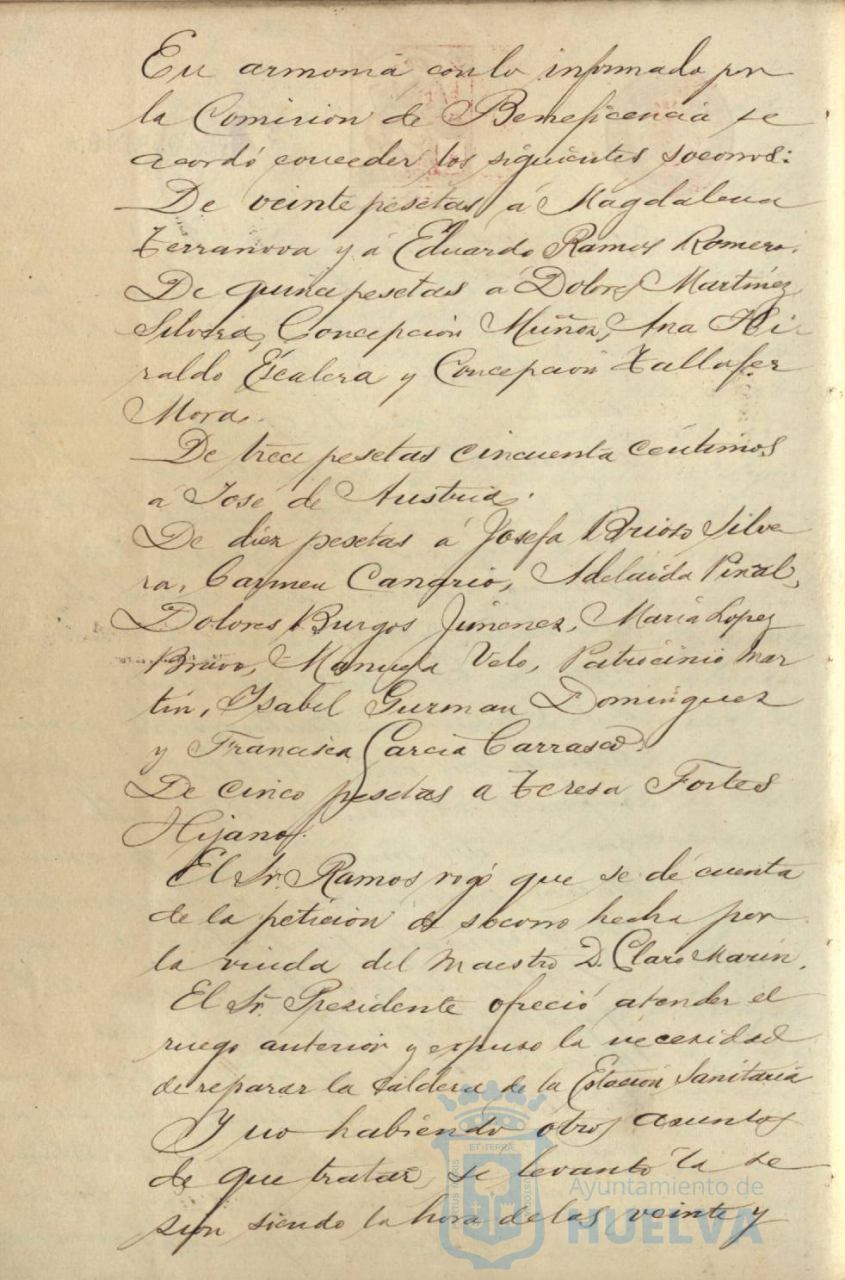 En armonia con lo informado por
la Comision de Beneficencia se
acordó conceder los siguientes socorros:
De veinte pesetas á Magdalena
Terranova y á Eduardo Ramos Romero.
De quince pesetas a Dolores Martinez
Silvera, Concepción Muñoz, Ana Hi-
raldo Escalera y Concepcion Vallafer
Mora.
De trece pesetas cincuenta céntimos
á José de Austria.
De diez pesetas á Josefa Brioso Silve
ra, Carmen Canario, Adelaida Peral,
Dolores Burgos Jimenez, Maria Lopez
Bravo, Manuela Velo, Patrocinio Mar
tín, Isabel Guzman Dominguez
y Francisca Garcia Carrasco.
De cinco pesetas a Teresa Fortes
Hijano.
El Sr. Ramos rogó que se dé cuenta
de la petición de socorro hecha por
la viuda del Maestro D. Claro Marin.
El Sr. Presidente ofreció atender el
ruego anterior y expuso la necesidad
de reparar la caldera de la Estación Sanitaria
Y no habiendo otros asuntos
de que tratar, se levantó la se
sion siendo la hora de las veinte y
Ayuntamiento de
HUELVA